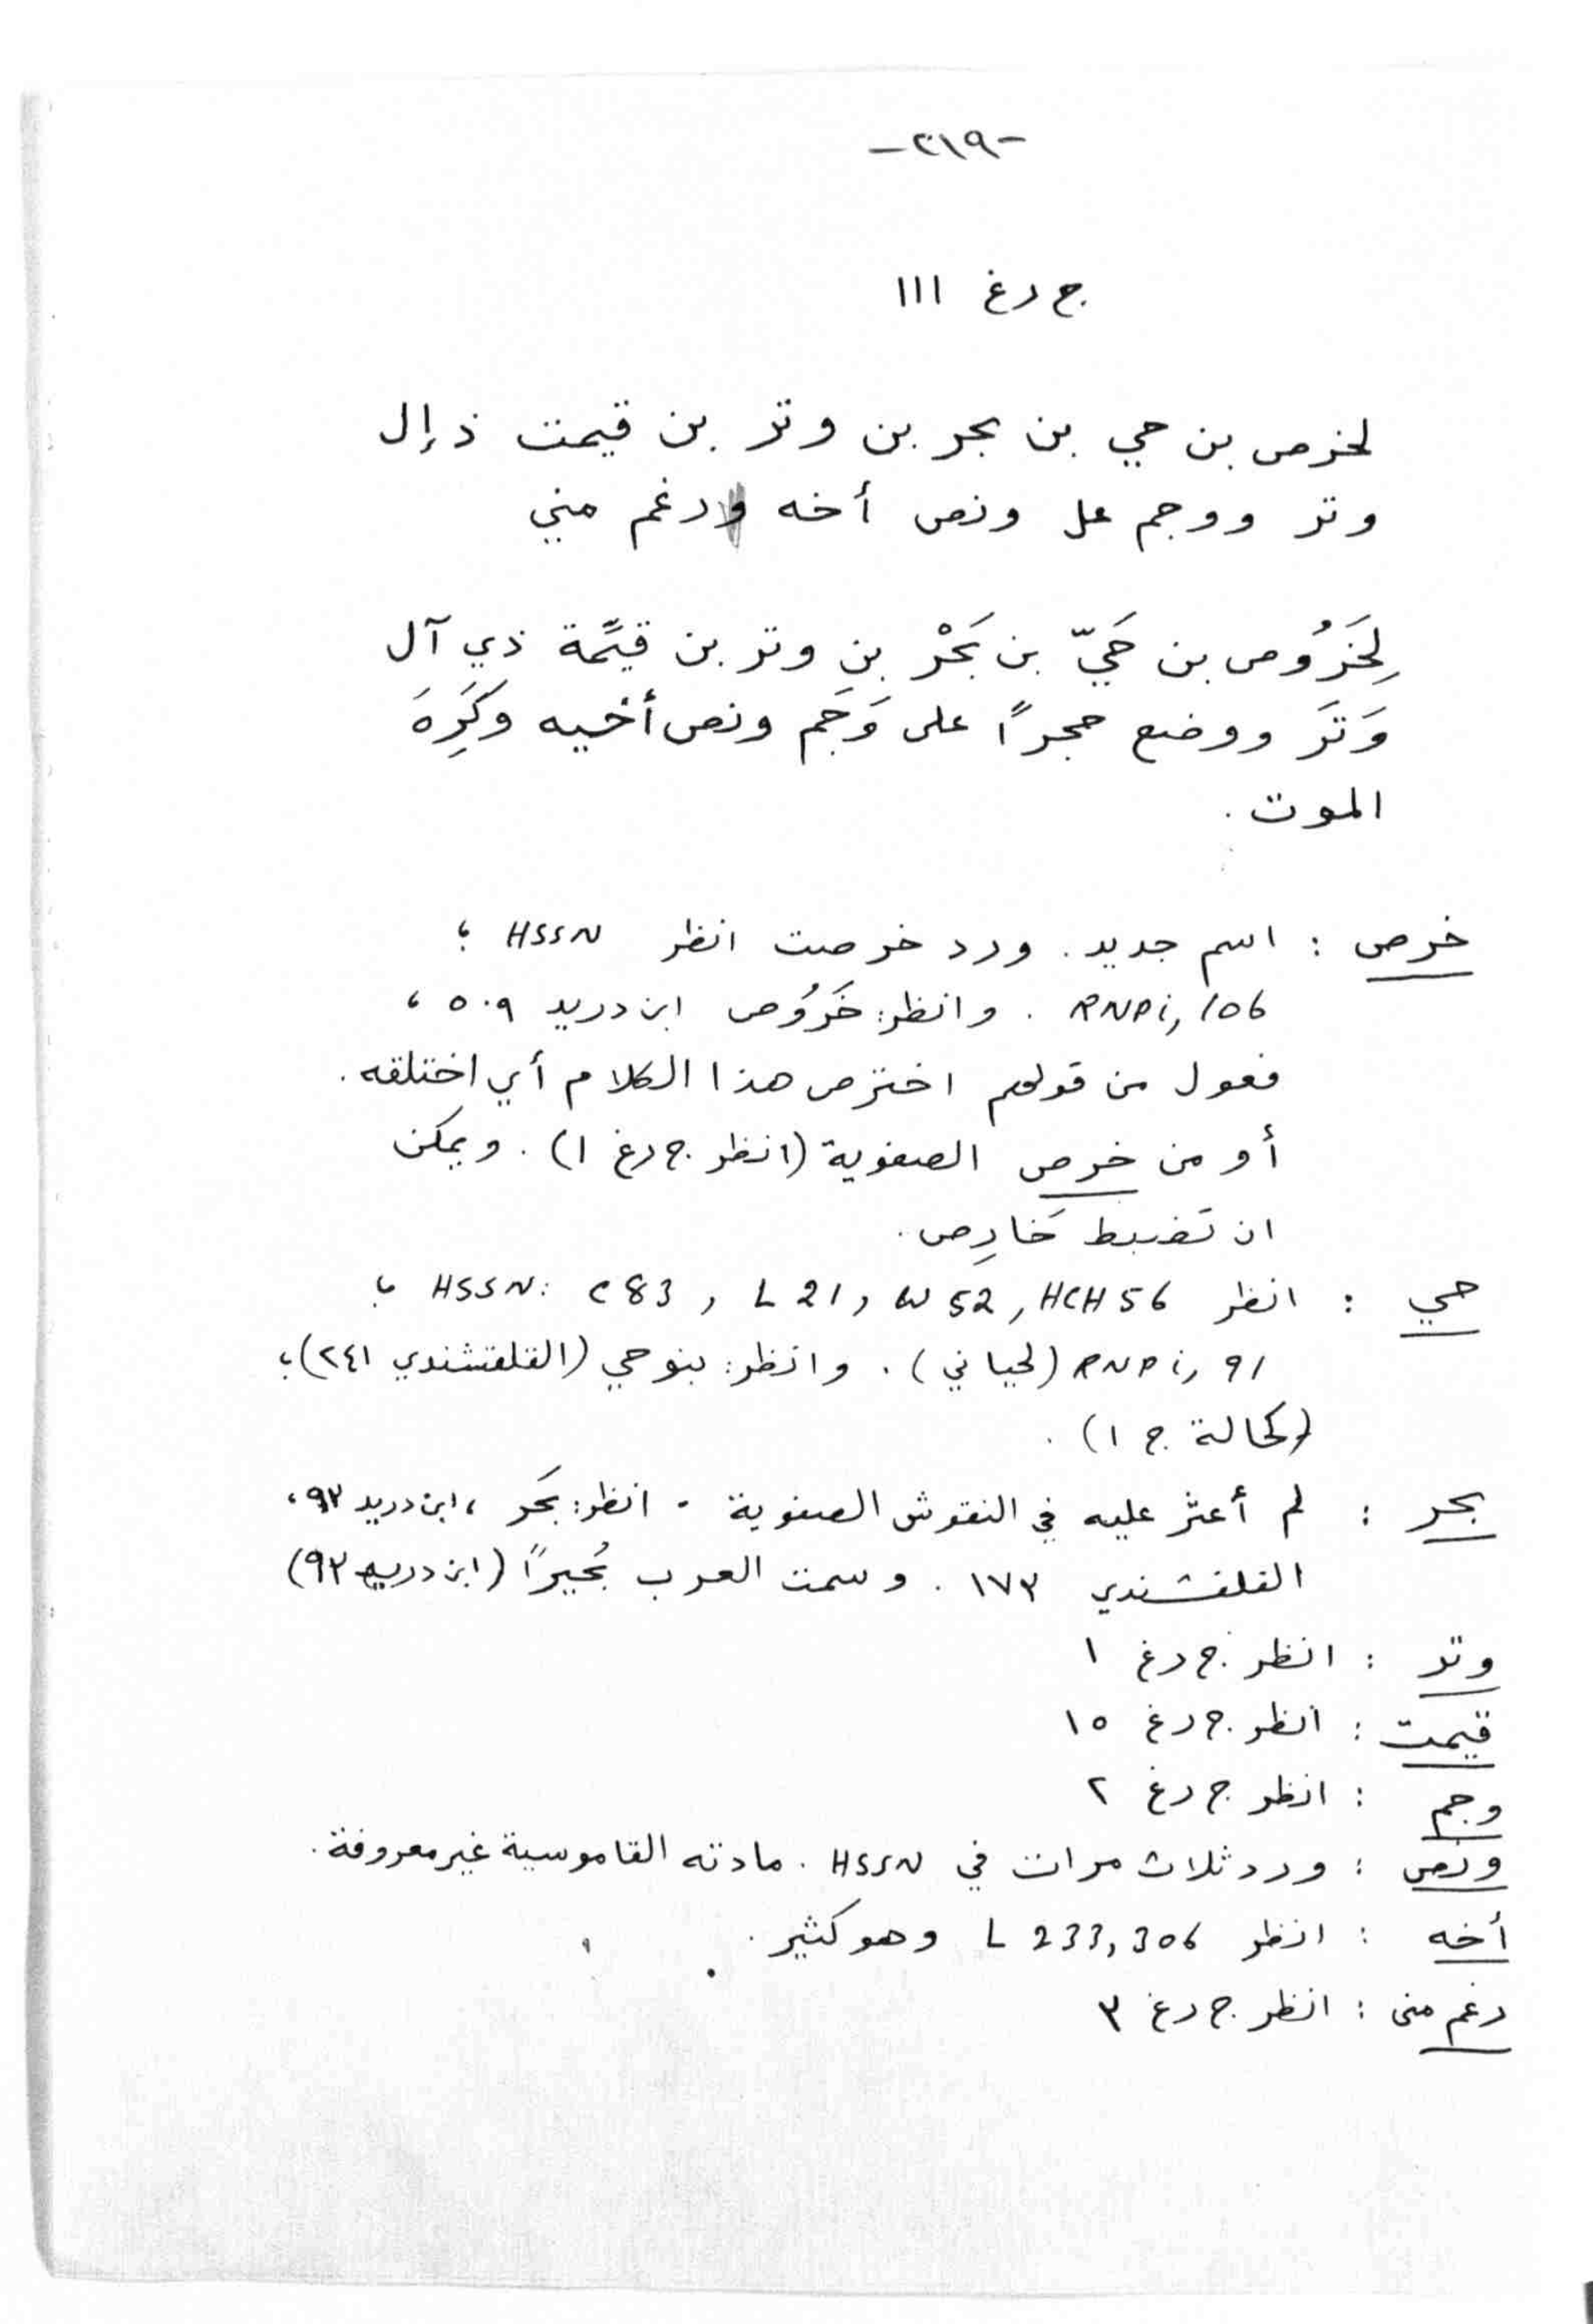 -٢١٩-
ج رغ ١١١
لخرص بن حي بن بحر بن وتر بن قيمت ذ إل
وتر ووجم عل ونص أخه ورغم مني
لِخَرُوص بن حَيّ بن بَحْر بن وتر بن قيِّمة ذي آل
وَتَر ووضع حجراً على وَجَم ونص أخيه وكَرِهَ
الموت .
خرص : اسم جديد . ورد خرصت انظر HSSN ؛
RNPi, 106 . وانظر: خَرُوص ابن دريد ٥٠٩ ،
فعول من قولهم اخترص هذا الكلام أي اختلقه .
أو من خرص الصفوية (انظر ج رغ ١) . ويمكن
ان تضبط خَارِص .
حي : انظر HSSN: C 83, L 21, W 52, HCH 56 ؛
RNPi, 91 (لحياني) . وانظر: بنو حي (القلقشندي ٢٤١)؛
(كحالة ج ١) .
بحر : لم أعثر عليه في النقوش الصفوية . انظر: بَحَر ، ابن دريد ٩٣ ،
القلقشندي ١٧٣ . وسمت العرب بُحَيراً (ابن دريد ٩٣)
وتر : انظر ج رغ ١
قيمت : انظر ج رغ ١٥
وجم : انظر ج رغ ٢
ونص : ورد ثلاث مرات في HSSN . مادته القاموسية غير معروفة .
أخه : انظر L 233, 306 وهو كثير .
رغم منى : انظر ج رغ ٣